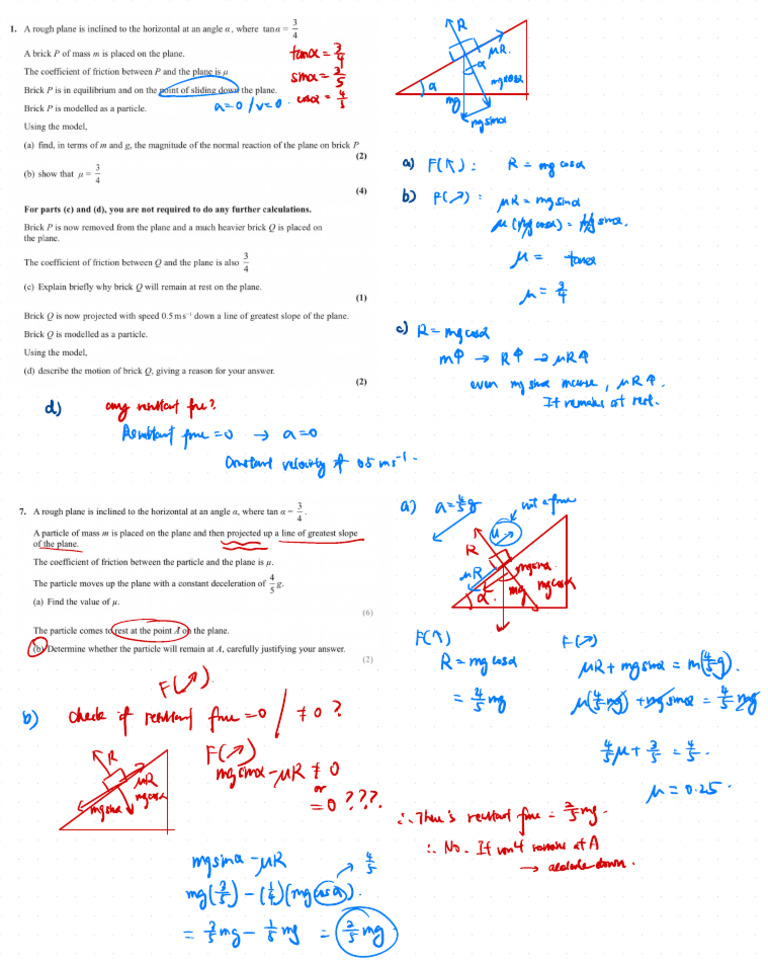 1. A rough plane is inclined to the horizontal at an angle α, where tan α = 3/4
A brick P of mass m is placed on the plane.
tanα = 3/4
The coefficient of friction between P and the plane is μ
sinα = 3/5
Brick P is in equilibrium and on the point of sliding down the plane.
cosα = 4/5
a=0 / v=0.
Brick P is modelled as a particle.
Using the model,
(a) find, in terms of m and g, the magnitude of the normal reaction of the plane on brick P
(2)
(b) show that μ = 3/4
(4)
For parts (c) and (d), you are not required to do any further calculations.
Brick P is now removed from the plane and a much heavier brick Q is placed on
the plane.
The coefficient of friction between Q and the plane is also 3/4
(c) Explain briefly why brick Q will remain at rest on the plane.
(1)
Brick Q is now projected with speed 0.5 m s⁻¹ down a line of greatest slope of the plane.
Brick Q is modelled as a particle.
Using the model,
(d) describe the motion of brick Q, giving a reason for your answer.
(2)
R
μR
α
α
mg
mgcosα
mgsinα
a) F(↖): R = mg cosα
b) F(↗): μR = mg sinα
μ(mg cosα) = mg sinα.
μ = tanα
μ = 3/4
c) R = mg cosα
m↑ → R↑ → μR↑
even mg sinα increase, μR↑.
It remains at rest.
d) any resultant force?
Resultant force = 0 → a=0
Constant velocity of 0.5 ms⁻¹.
7. A rough plane is inclined to the horizontal at an angle α, where tan α = 3/4.
A particle of mass m is placed on the plane and then projected up a line of greatest slope
of the plane.
The coefficient of friction between the particle and the plane is μ.
The particle moves up the plane with a constant deceleration of 4/5 g.
(a) Find the value of μ.
(6)
The particle comes to rest at the point A on the plane.
(b) Determine whether the particle will remain at A, carefully justifying your answer.
(2)
a) a = 4/5 g
not a force
u
R
μR
α
mgsinα
mg
mgcosα
F(↖)
R = mg cosα
= 4/5 mg
F(↗)
μR + mg sinα = m(4/5 g).
μ(4/5 mg) + mg sinα = 4/5 mg
4/5 μ + 3/5 = 4/5.
μ = 0.25.
F(↗).
b) check if resultant force = 0 / ≠ 0?
R
μR
mgsinα
mgcosα
F(↗)
mg sinα - μR ≠ 0
or
= 0 ???.
mg sinα - μR
4/5
mg(3/5) - (1/4)(mg cosα).
= 3/5 mg - 1/5 mg = 2/5 mg
∴ There's resultant force = 2/5 mg.
∴ No. It won't remains at A
→ down.